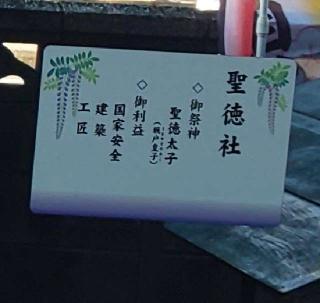 聖徳社
◇御祭神
聖徳太子
(厩戸皇子)
◇御利益
国家安全
建築
工匠